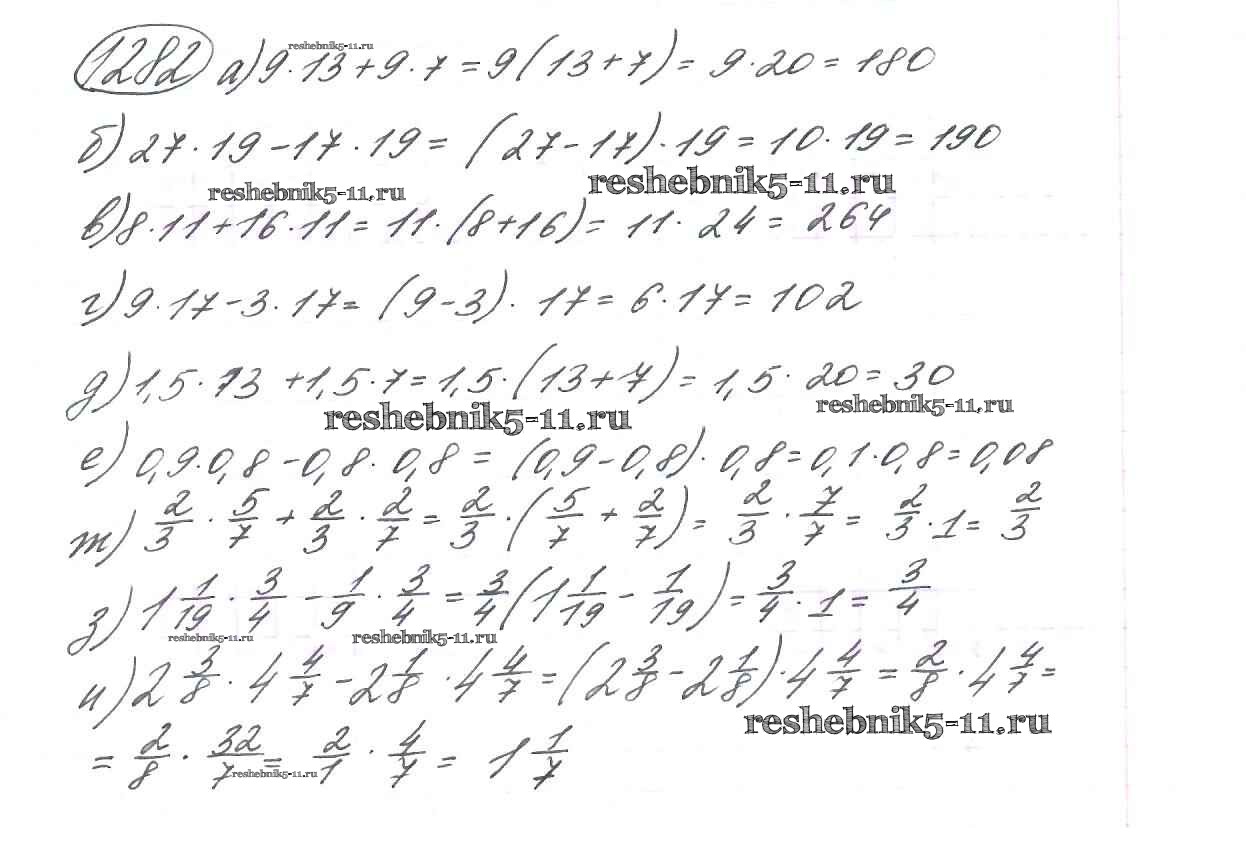 reshebnik5-11.ru
1282 а) 9·13+9·7=9(13+7)=9·20=180
б) 27·19-17·19=(27-17)·19=10·19=190
reshebnik5-11.ru reshebnik5-11.ru
в) 8·11+16·11=11·(8+16)=11·24=264
г) 9·17-3·17=(9-3)·17=6·17=102
д) 1,5·13+1,5·7=1,5·(13+7)=1,5·20=30
reshebnik5-11.ru reshebnik5-11.ru
е) 0,9·0,8-0,8·0,8=(0,9-0,8)·0,8=0,1·0,8=0,08
ж) 2/3·5/7+2/3·2/7=2/3·(5/7+2/7)=2/3·7/7=2/3·1=2/3
з) 1 1/19·3/4-1/9·3/4=3/4(1 1/19-1/19)=3/4·1=3/4
reshebnik5-11.ru reshebnik5-11.ru
и) 2 3/8·4 4/7-2 1/8·4 4/7=(2 3/8-2 1/8)·4 4/7=2/8·4 4/7=
reshebnik5-11.ru
=2/8·32/7=2/1·4/7=1 1/7
reshebnik5-11.ru